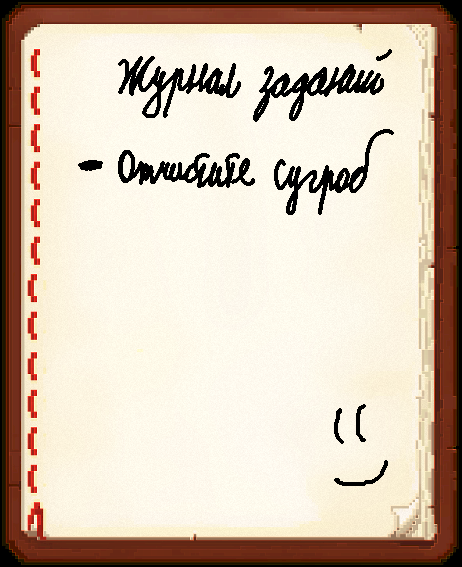 Журнал заданий
- Отчистите сугроб